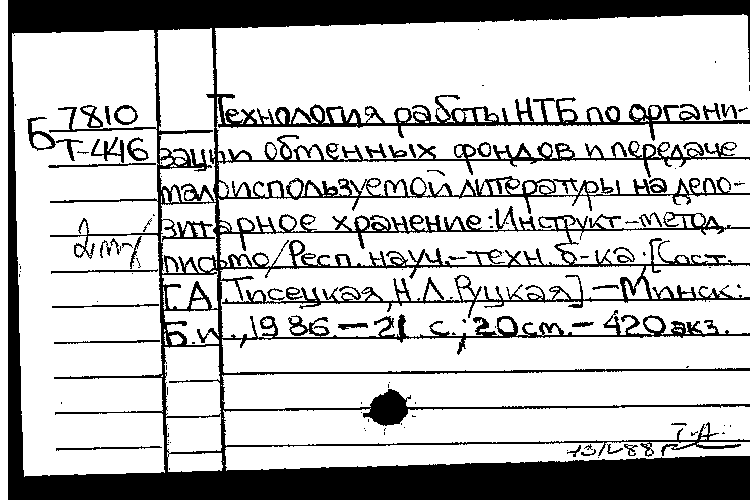 Б 7810
Т-446
Технология работы НТБ по органи-
зации обменных фондов и передаче
малоиспользуемой литературы на депо-
зитарное хранение: Инструкт-метод.
письмо/Респ. науч.-техн. б-ка; [Сост.
Г.А. Тисецкая, Н.Л. Руцкая]. — Минск:
Б.и., 1986. — 21 с.; 20 см. — 420 экз.
Т-Д.